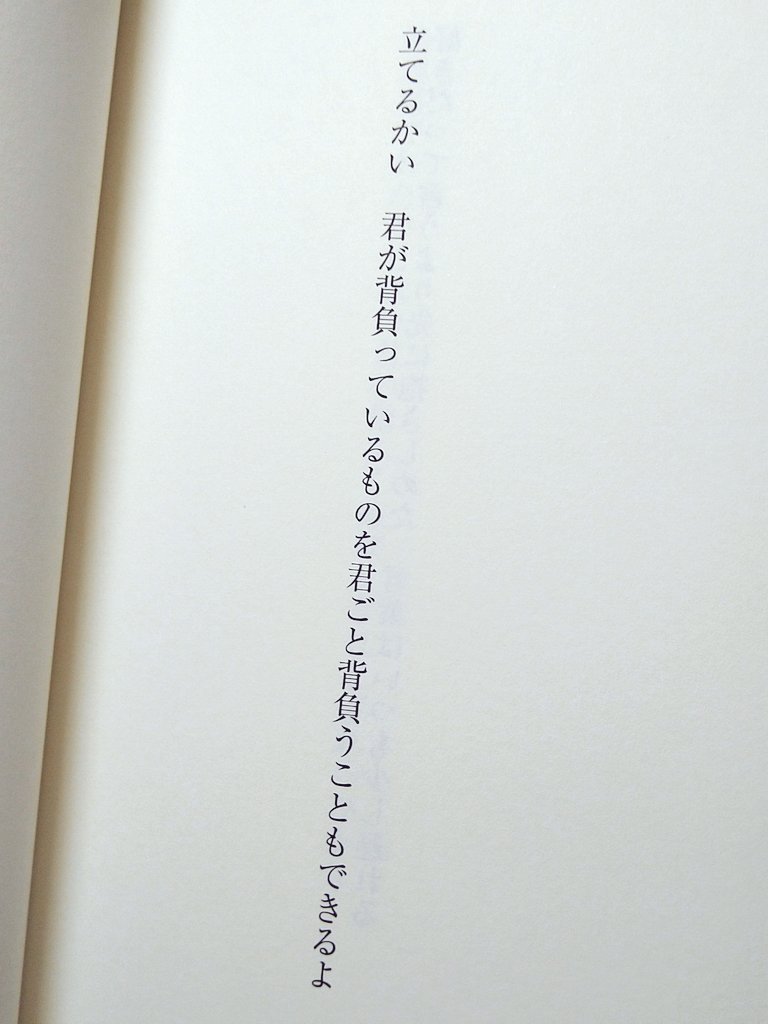 立てるかい　君が背負っているものを君ごと背負うこともできるよ